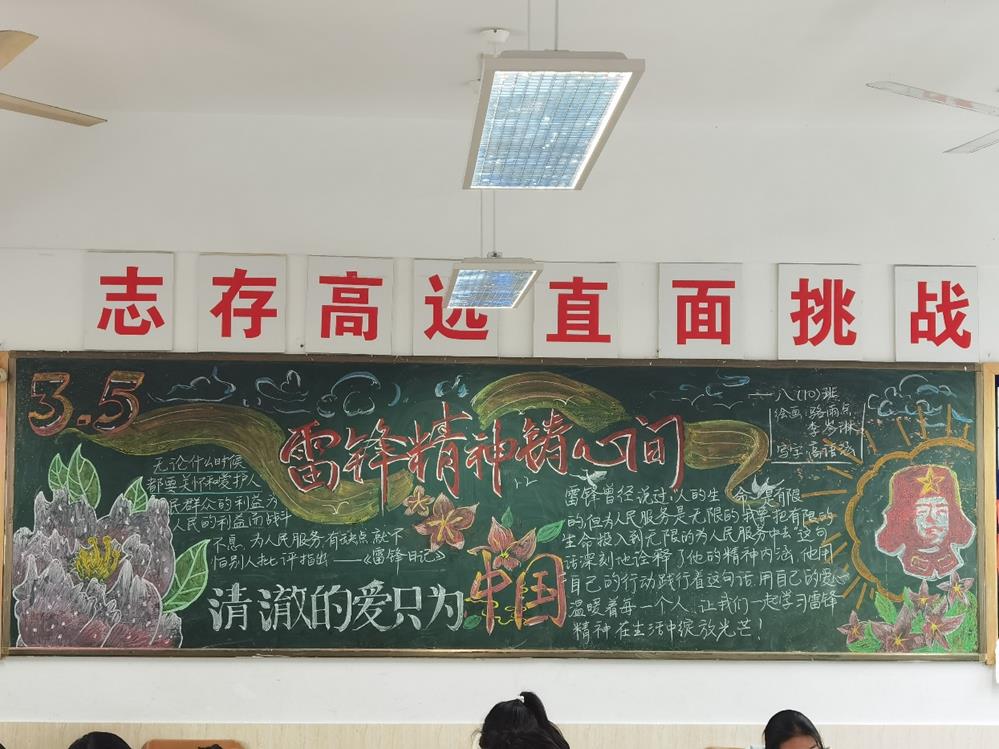 志存高远直面挑战
3.5
雷锋精神铸心间
八(10)班
绘画:骆雨点
写字:
无论什么时候
都要关怀和爱护人
民群众的利益为
人民的利益而战斗
不愿为人民服务有缺点就不
怕别人批评指出——《雷锋日记》
清澈的爱只为中国
雷锋曾经说过:人的生命是有限
的但为人民服务是无限的我要把有限的
生命投入到无限的为人民服务中去这句
话深刻地诠释了他的精神内涵,他用
自己的行动践行着这句话用自己的爱心
温暖着每一个人,让我们一起学习雷锋
精神在生活中绽放光芒!